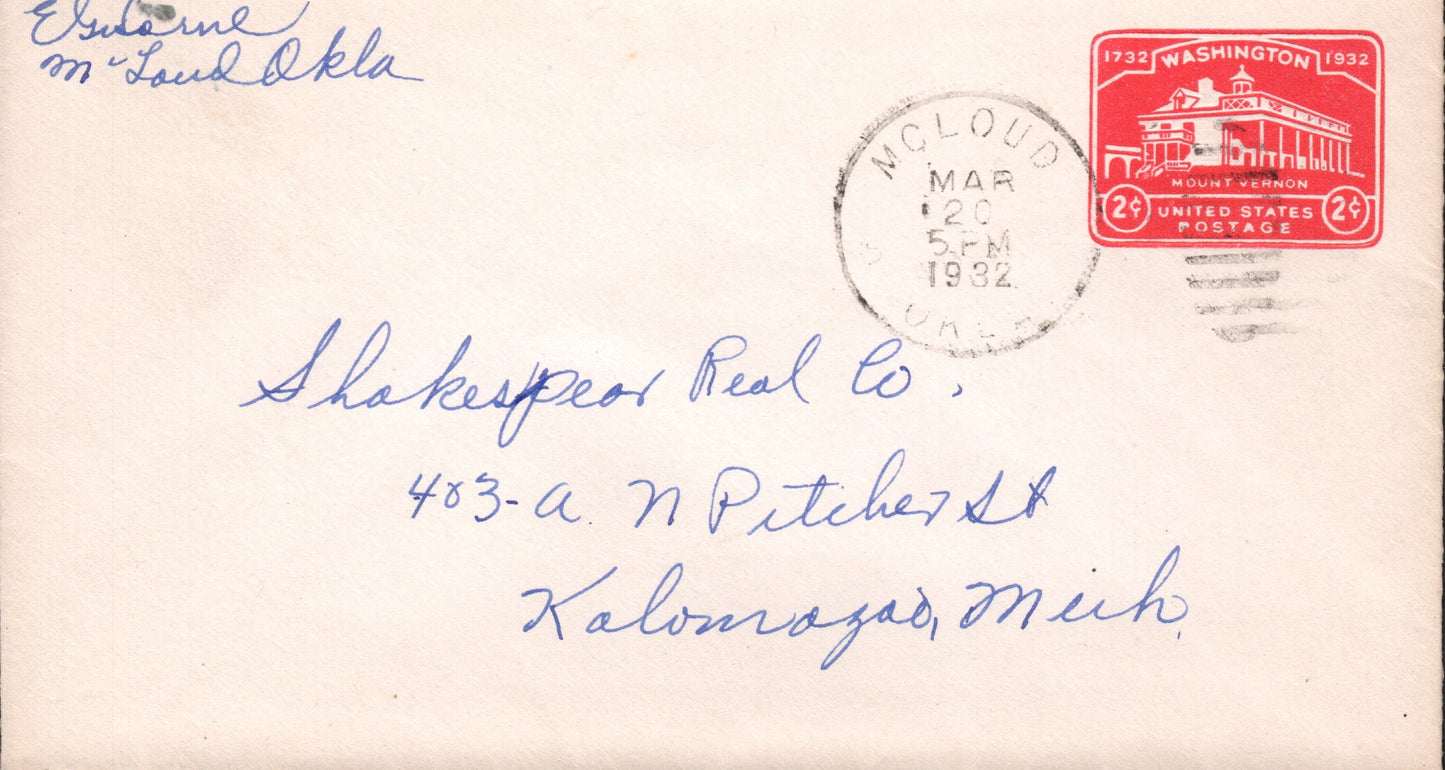 Mc Loud Okla
1732 WASHINGTON 1932
MOUNT VERNON
2¢ UNITED STATES 2¢
POSTAGE
MCLOUD
MAR
20
5 PM
1932
OKLA
Shakespear Real Co.
403-A. N Pitcher St
Kalomazoo, Mich.